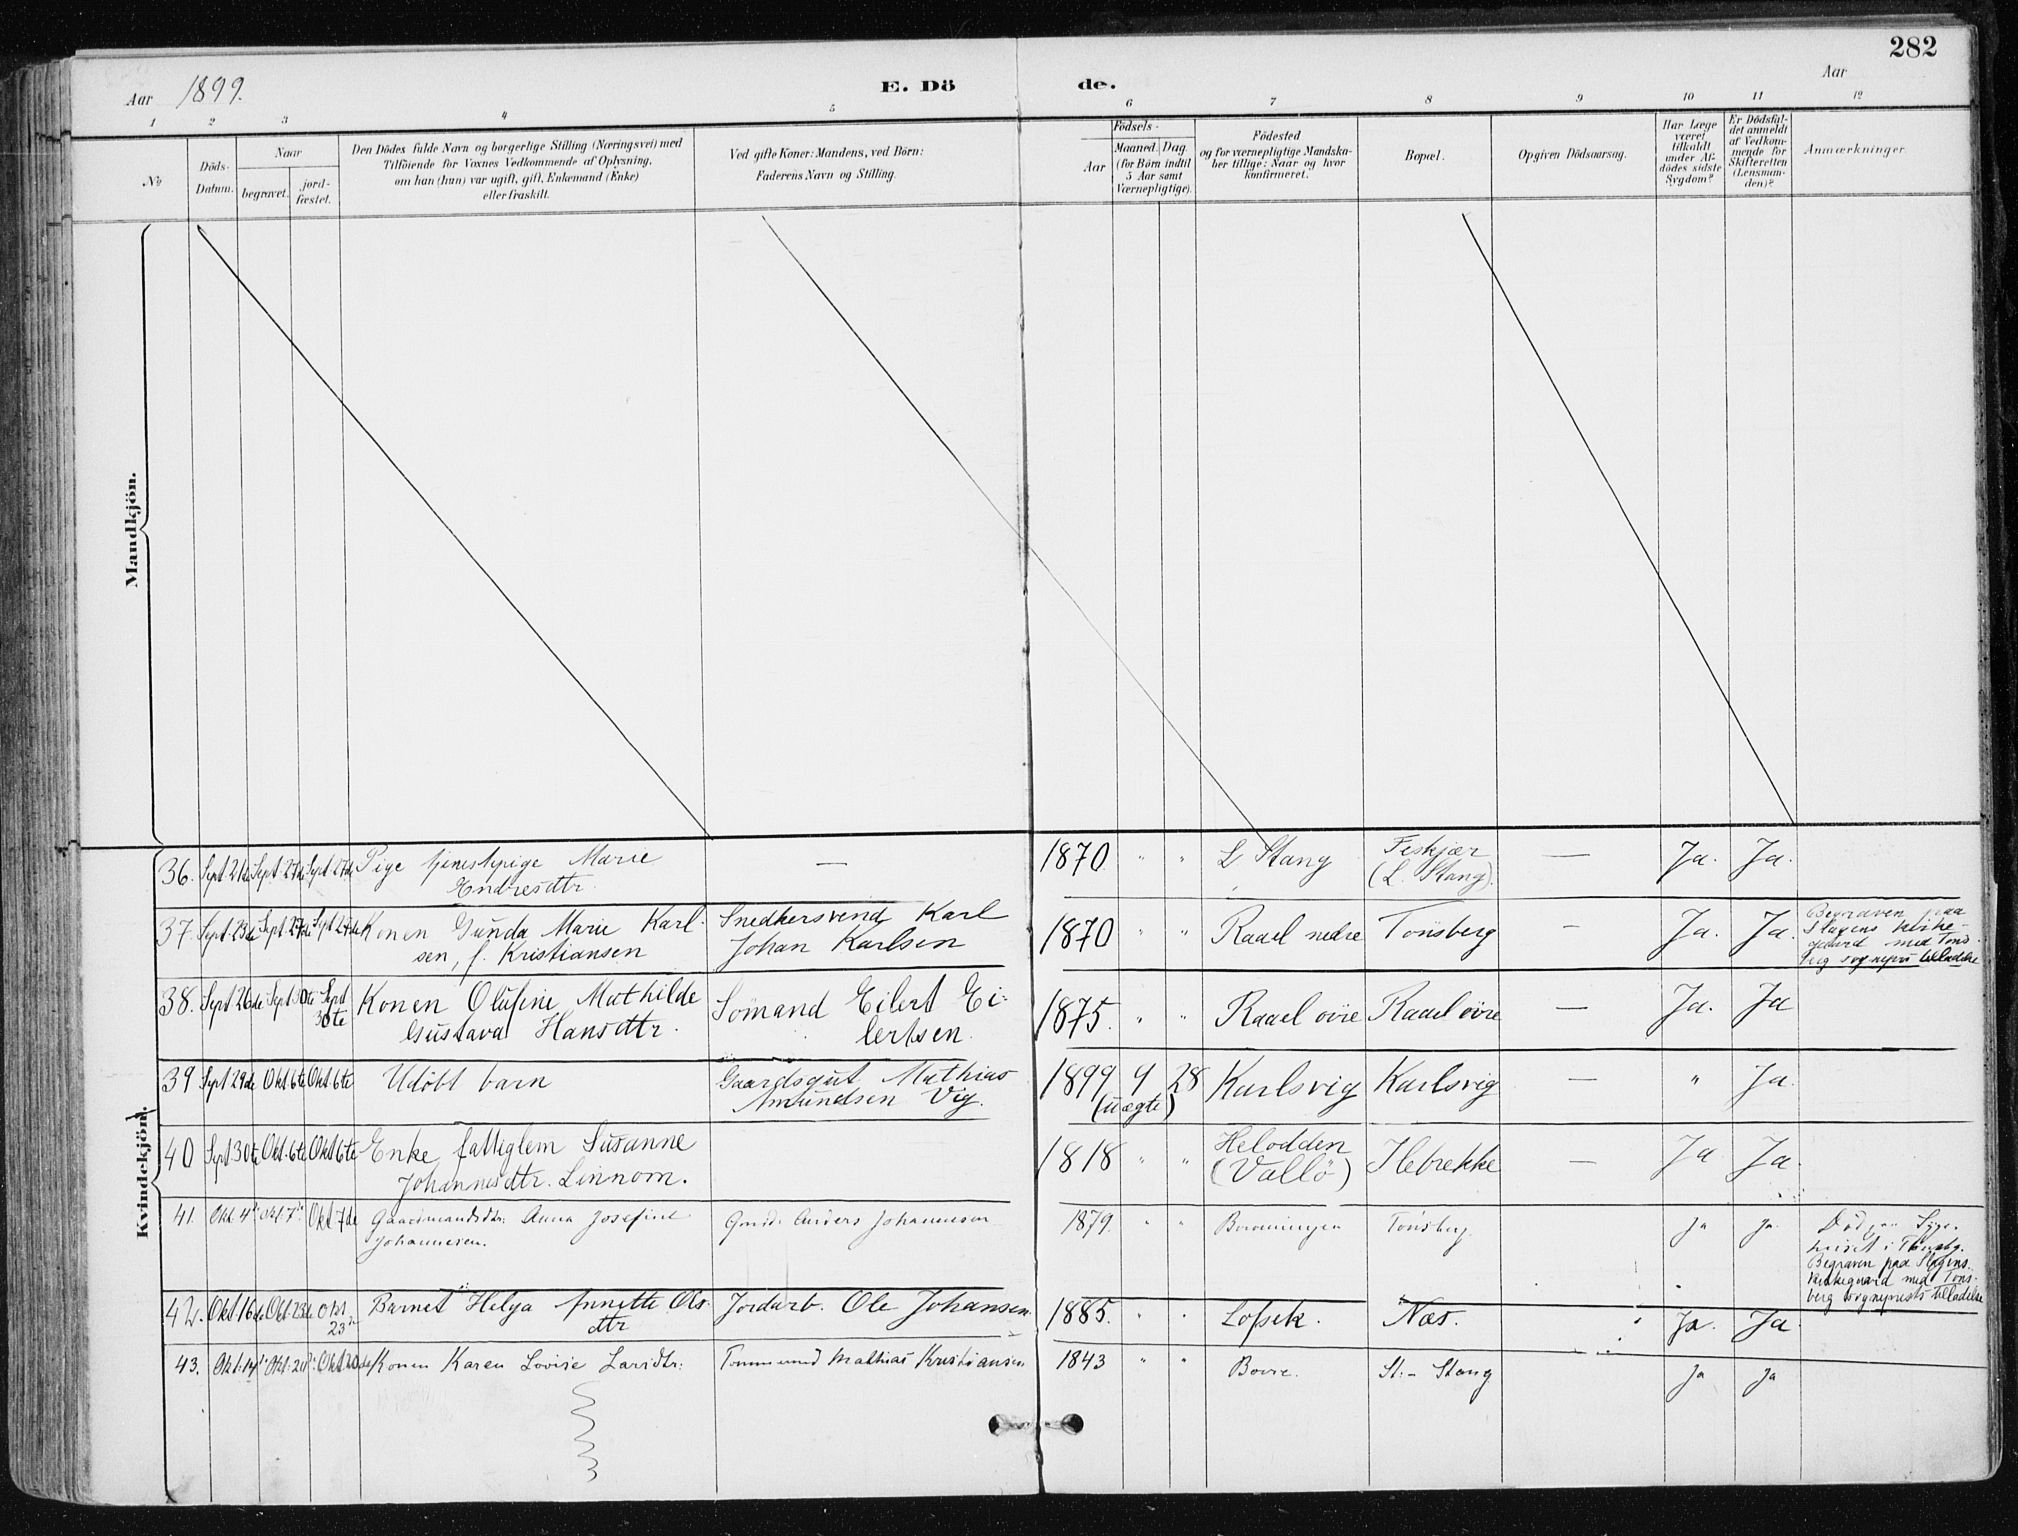 282
Aar 1899.
E. Dö de.
Aar
1 2 3 4 5 6 7 8 9 10 11 12
No
Döds-
Datum.
Naar
begravet.
jord-
fæstet.
Den Dödes fulde Navn og borgerlige Stilling (Næringsvei) med
Tilföiende for Voxnes Vedkommende af Oplysning,
om han (hun) var ugift, gift, Enkemand (Enke)
eller fraskilt.
Ved gifte Koner: Mandens, ved Börn:
Faderens Navn og Stilling.
Födsels-
Aar
Maaned. Dag.
(for Börn indtil
5 Aar samt
Værnepligtige).
Födested
og for værnepligtige Mandska-
ber tillige: Naar og hvor
konfirmeret.
Bopæl.
Opgiven Dödsaarsag.
Har Læge
været
tilkaldt
under Af-
dödes sidste
Sygdom?
Er Dödsfal-
det anmeldt
af Vedkom-
mende for
Skifteretten
(Lensman-
den)?
Anmærkninger.
Mandkjön.
Kvindekjön.
36. Sept 21de Sept 27de Sept 27de Pige tjenestepige Marie
Endresdtr. — 1870 " " L Stang Feskjær
(L. Stang). — Ja. Ja.
37. Sept 23de Sept 27de Sept 27de Konen Gunda Marie Karl-
sen, f. Kristiansen
Snedkersvend Karl
Johan Karlsen
1870 " " Raael nedre Tönsberg — Ja. Ja.
Begraven paa
Slagens kirke-
gaard med Töns-
berg sognepr's tilladelse
38. Sept 26de Sept 30te Sept
30te
Konen Olufine Mathilde
Gustava Hansdtr.
Sömand Eilert Ei-
lertsen.
1875. " " Raael övre Raael övre — Ja. Ja
39 Sept 29de Okt 6te Okt 6te Udöbt barn
Gaardsgut Mathias
Amundsen Vig.
1899 9 28
(uægte)
Karlsvig Karlsvig — " Ja.
40 Sept 30te Okt 6te Okt 6te Enke fattiglem Susanne
Johannesdtr. Linnom.
1818 " " Helodden
(Vallö) Ilebrekke — Ja Ja.
41. Okt. 4de Okt. 7de Okt 7de Gaardmandsdtr: Anna Josefine
Johannesen.
Gmd. Anders Johannesen
1879. " " Tönsberg. Ja Ja.
Död paa Syge-
huset i Tönsbg.
Begraven paa Slagens
kirkegaard med Töns-
berg sogneprests tilladelse
42. Okt 16de Okt 23de Okt.
23de
Barnet Helga Annette Ols-
dtr
Jordarb. Ole Johansen.
1885. " " Lofsek. Næs. Ja. Ja
43. Okt: 14de Okt: 20de Okt 20de Konen Karen Lovise Larsdtr:
Tömmermd Mathias Kristiansen
1843 " " St:- Stang Ja Ja